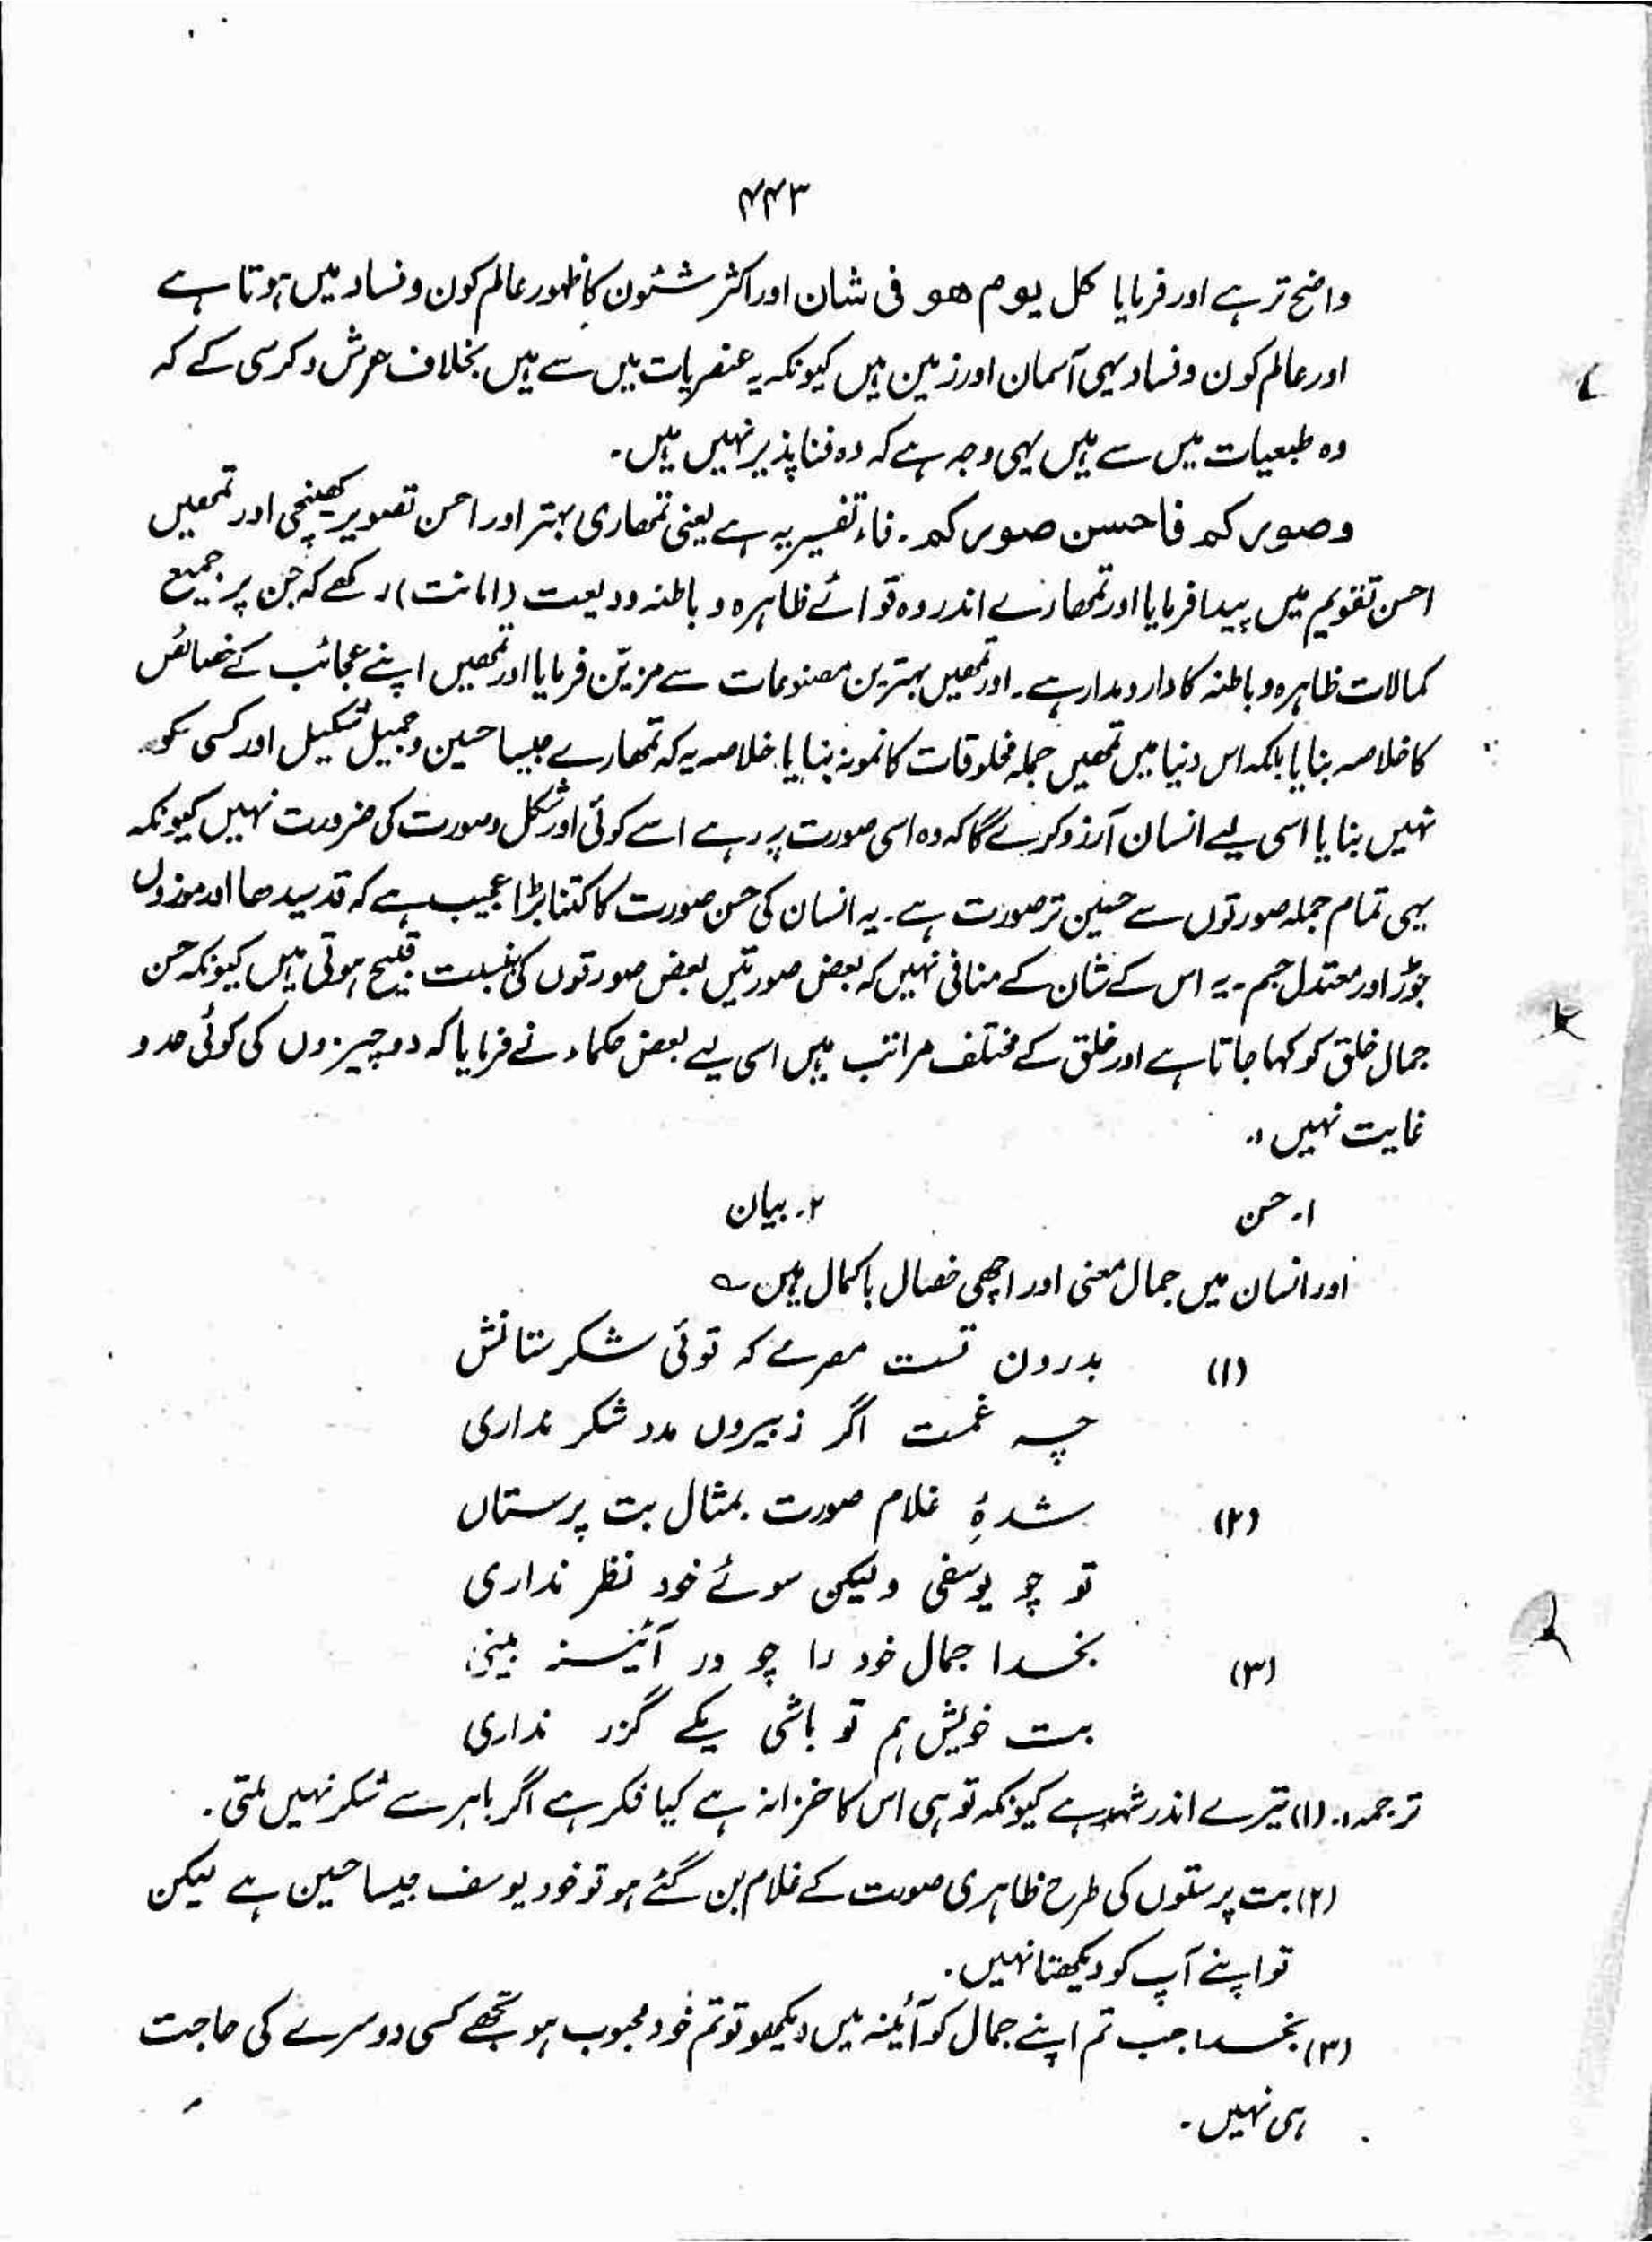 ۴۴۳
واضح تر ہے اور فرمایا کل یوم ھو فی شان اور اکثر شئون کا ظہور عالم کون و فساد میں ہوتا ہے
اور عالم کون و فساد یہی آسمان اور زمین ہیں کیونکہ یہ عنصریات میں سے ہیں بخلاف عرش و کرسی کے کہ
وہ طبعیات میں سے ہیں یہی وجہ ہے کہ وہ فنا پذیر نہیں ہیں۔
وصورکم فاحسن صورکم ۔ فاء تفسیریہ ہے یعنی تمھاری بہتر اور احسن تصویر کھینچی اور تمھیں
احسن تقویم میں پیدا فرمایا اور تمھارے اندر وہ قوائے ظاہرہ و باطنہ ودیعت (امانت) رکھے کہ جن پر جمیع
کمالات ظاہرہ و باطنہ کا دارومدار ہے۔ اور تمھیں بہترین مصنوعات سے مزیّن فرمایا اور تمھیں اپنے عجائب کے خصائص
کا خلاصہ بنایا بلکہ اس دنیا میں تمھیں جملہ مخلوقات کا نمونہ بنایا خلاصہ یہ کہ تمھارے جیسا حسین و جمیل شکیل اور کسی کو
نہیں بنایا اسی لیے انسان آرزو کرے گا کہ وہ اسی صورت پر رہے اسے کوئی اور شکل و صورت کی ضرورت نہیں کیونکہ
یہی تمام جملہ صورتوں سے حسین تر صورت ہے۔ یہ انسان کی حسن صورت کا کتنا بڑا عجیب ہے کہ قد سیدھا اور موزوں
جوڑ اور معتدل جسم۔ یہ اس کے شان کے منافی نہیں کہ بعض صورتیں بعض صورتوں کی بنسبت قبیح ہوتی ہیں کیونکہ حسن
جمال خلق کو کہا جاتا ہے اور خلق کے مختلف مراتب ہیں اسی لیے بعض حکماء نے فرمایا کہ دو چیزوں کی کوئی حد و
غایت نہیں :۔
۱۔ حسن ۲۔ بیان
اور انسان میں جمال معنی اور اچھی خصال باکمال ہیں ؎
(۱) بدرون تست مصرے کہ توئی شکر ستانش
چہ غمست اگر زبیروں مدد شکر نداری
(۲) شدۂ غلام صورت بمثال بت پرستاں
تو چو یوسفی ولیکن سوئے خود نظر نداری
(۳) بخدا جمال خود را چو در آئینہ بینی
بت خویش ہم تو باشی یکے گزر نداری
ترجمہ :۔ (۱) تیرے اندر شہد ہے کیونکہ تو ہی اس کا خزانہ ہے کیا فکر ہے اگر باہر سے شکر نہیں ملتی۔
(۲) بت پرستوں کی طرح ظاہری صورت کے غلام بن گئے ہو تو خود یوسف جیسا حسین ہے لیکن
تو اپنے آپ کو دیکھتا نہیں۔
(۳) بخدا جب تم اپنے جمال کو آئینہ میں دیکھو تو تم خود محبوب ہو تجھے کسی دوسرے کی حاجت
ہی نہیں۔